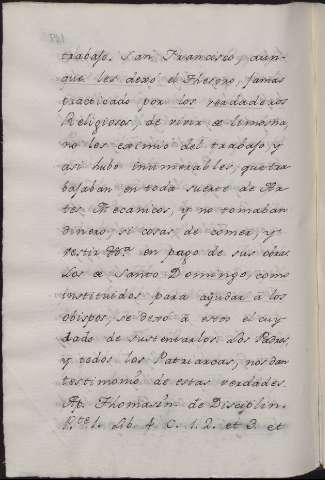 trabajo. San Francisco, aun-
que les dexò el Thesoro, jamas
practicado por los verdaderos
Religiosos, de vivir de limosna,
no les eximiò del trabajo, y
asi hubo innumerables, que tra
bajaban en toda suerte de Ar-
tes Mecanicos, y no tomaban
dinero, si cosas de comer, y
vestir &ª en pago de sus obras
Los de Santo Domingo, como
instituidos para ayudar à los
obispos, se dexò a estos el cuy
dado de sustentarlos. Los Padres,
y todos los Patriarcas, nos dan
testimonio de estas verdades.
Ap. Thomasin. de Disciplin.
P.te 1. Lib. 4 C. 1. 2. et 3. et